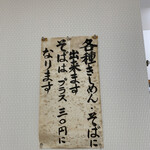 各種きしめん・そばに
出来ます
そばは プラス 三〇円に
なります